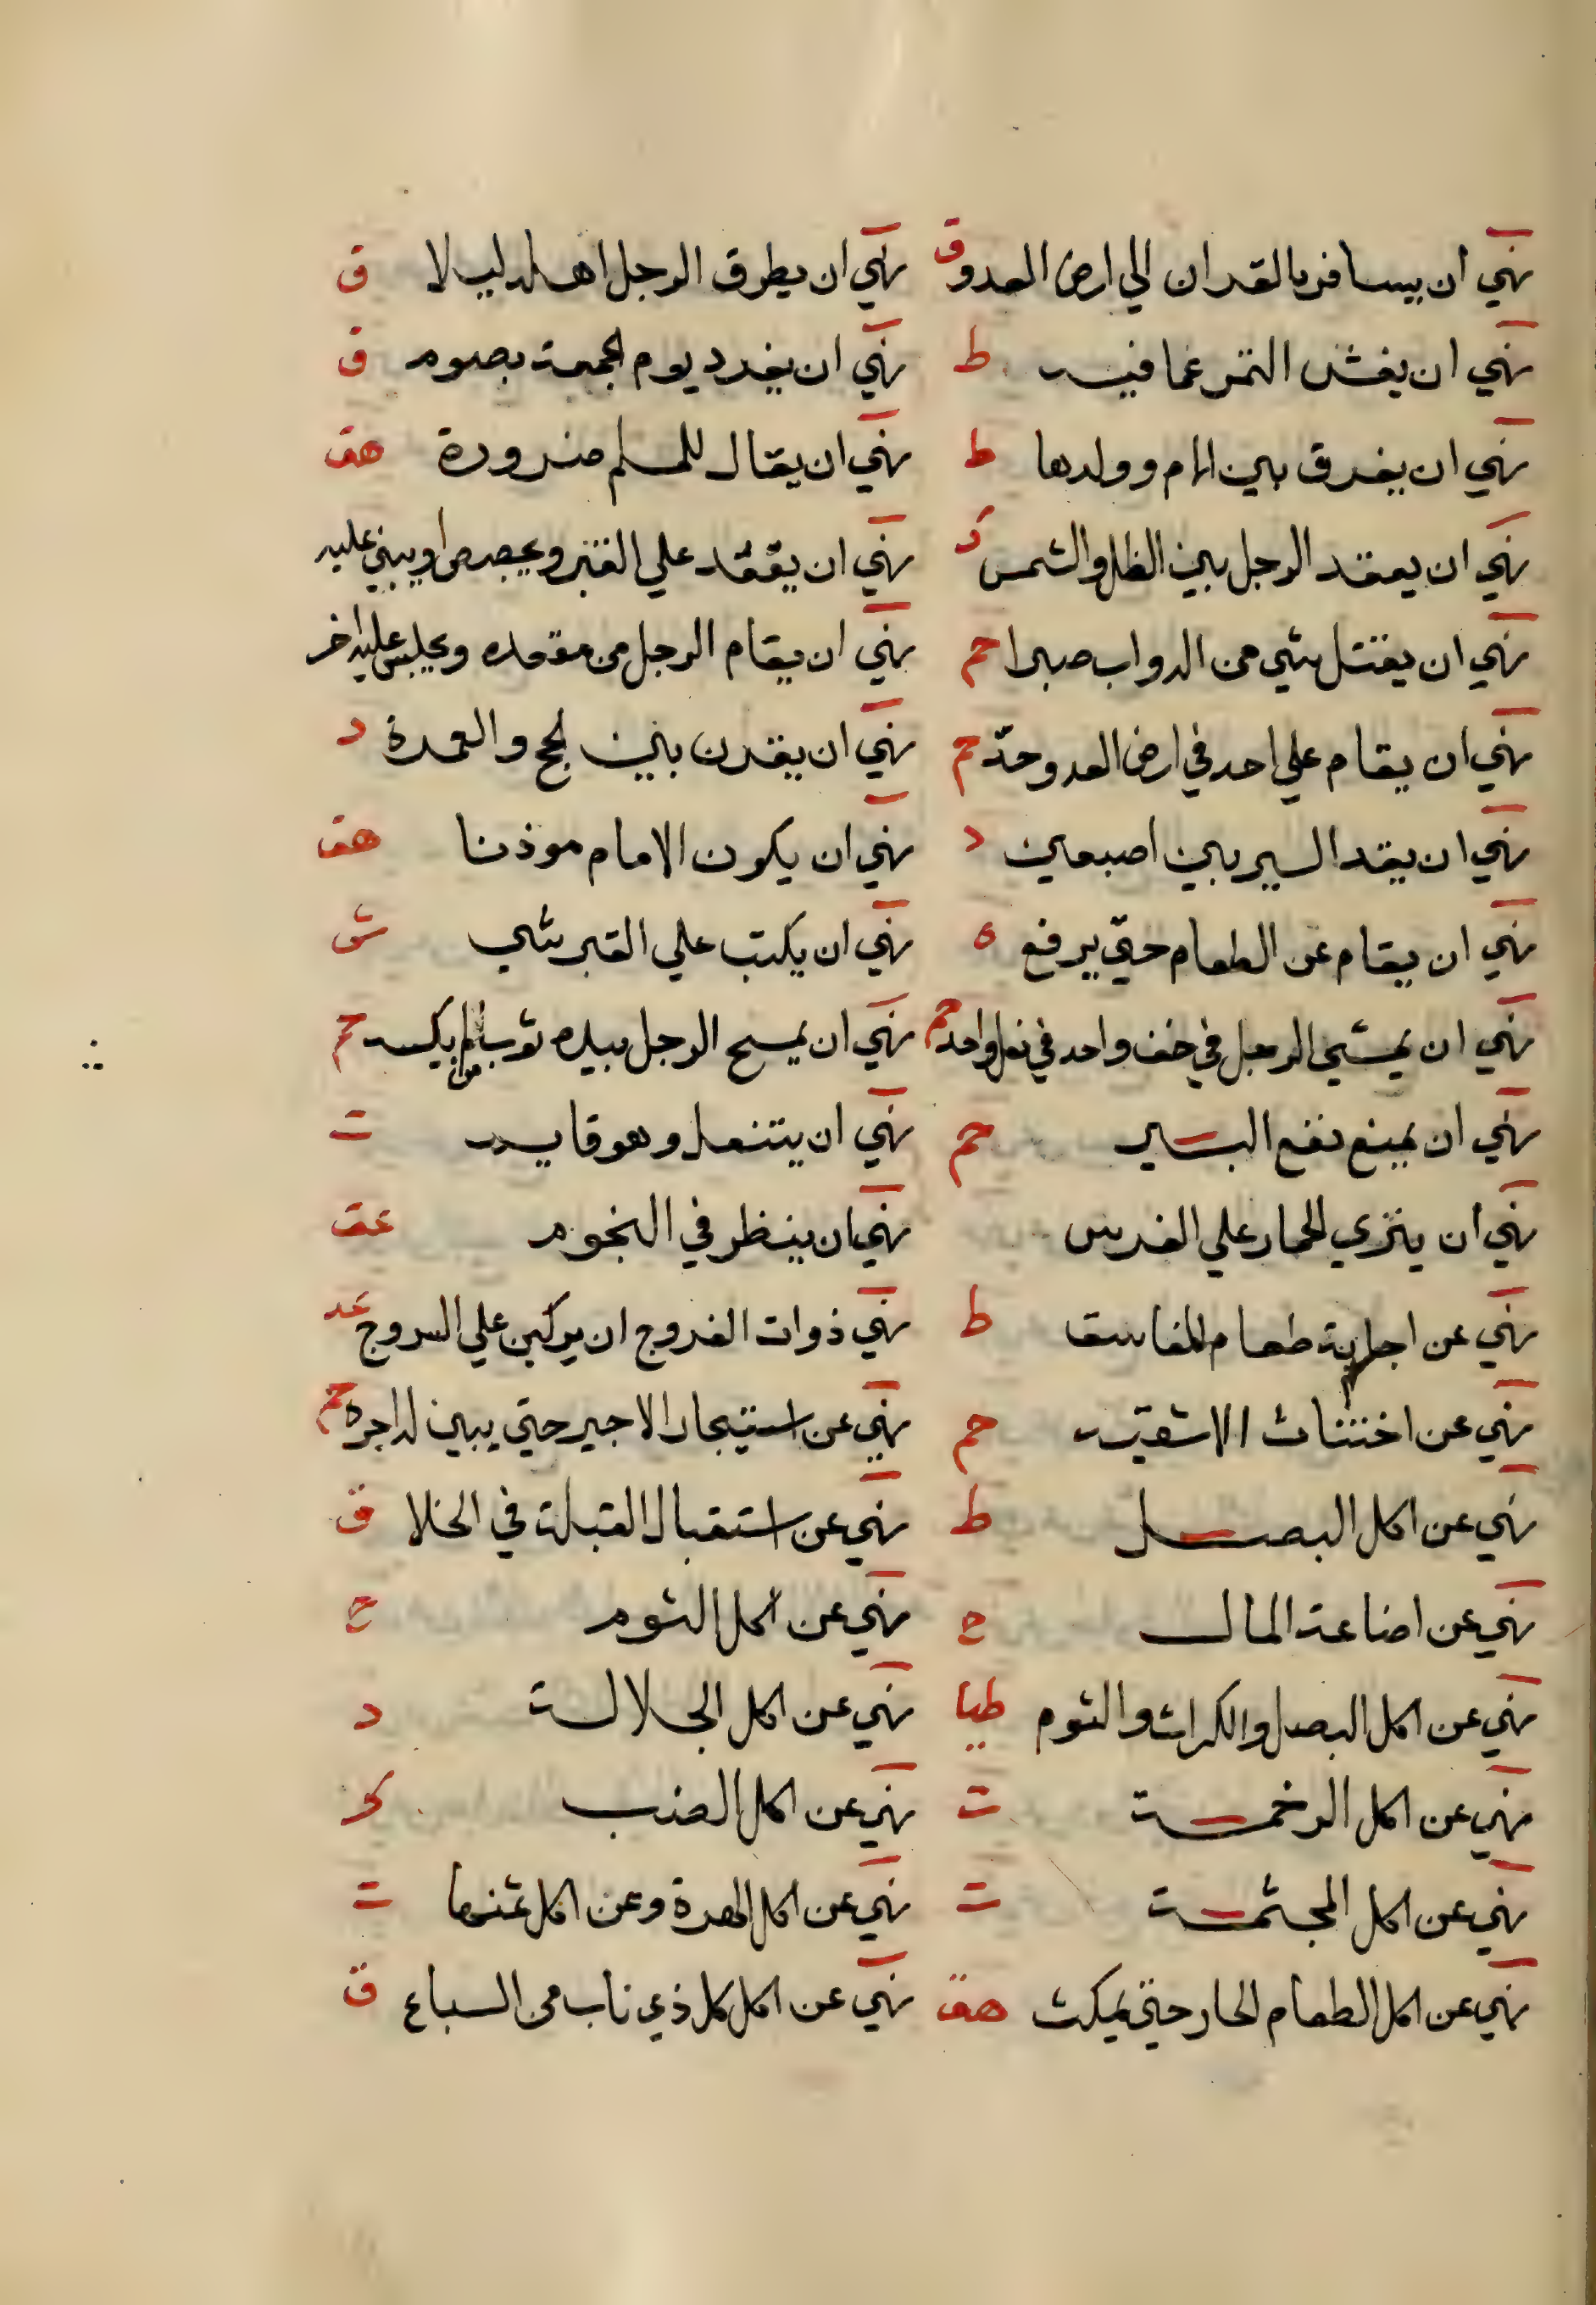 نهي ان يسافر بالقران الي ارض العدو ق نهي ان يطرق الرجل اهله ليلا ق
نهي ان يفتش التمر عما فيه ط نهي ان يفرد يوم الجمعة بصوم ق
نهي ان يفرق بين الام وولدها ط نهي ان يقال للمسلم صرورة هق
نهي ان يقعد الرجل بين الظل والشمس ك نهي ان يقعد علي القبر ويجصص او يبني عليه
نهي ان يقتل شي من الدواب صبرا حم نهي ان يقام الرجل من مقعده ويجلس عليه اخر
نهي ان يقام علي احد في ارض العدو حد حم نهي ان يقرن بين الحج والعمرة د
نهي ان يقد السير بين اصبعين د نهي ان يكون الامام موذنا هق
نهي ان يقام عن الطعام حتي يرفع ه نهي ان يكتب علي القبر شي ش
نهي ان يمشي الرجل في خف واحد في نعل واحد حم نهي ان يمسح الرجل بيده ثوب من لم يكسه حم
نهي ان يمنع نقع البير حم نهي ان يتنعل وهو قايم ت
نهي ان ينزي الحمار علي الفرس نهي ان ينظر في النجوم عق
نهي عن اجابة طعام الفاسق ط نهي ذوات الفروج ان يركبن علي السروج عد
نهي عن اختناث الاسقية حم نهي عن استيجار الاجير حتي يبين له اجره حم
نهي عن اكل البصل ط نهي عن استقبال القبلة في الخلا ق
نهي عن اضاعة المال ح نهي عن اكل الثوم ح
نهي عن اكل البصل والكراث والثوم طيا نهي عن اكل الجلالة د
نهي عن اكل الرخمة ت نهي عن اكل الضب كر
نهي عن اكل المجثمة ت نهي عن اكل الهرة وعن اكل ثمنها ت
نهي عن اكل الطعام الحار حتي يمكث هق نهي عن اكل كل ذي ناب من السباع ق